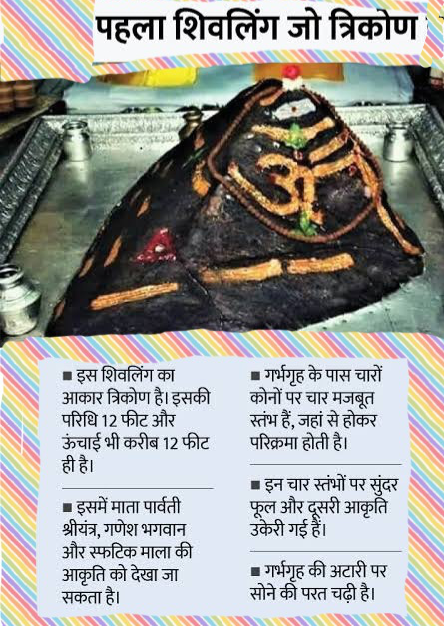 पहला शिवलिंग जो त्रिकोण
ॐ
■ इस शिवलिंग का
आकार त्रिकोण है। इसकी
परिधि 12 फीट और
ऊंचाई भी करीब 12 फीट
ही है।
■ इसमें माता पार्वती
श्रीयंत्र, गणेश भगवान
और स्फटिक माला की
आकृति को देखा जा
सकता है।
■ गर्भगृह के पास चारों
कोनों पर चार मजबूत
स्तंभ हैं, जहां से होकर
परिक्रमा होती है।
■ इन चार स्तंभों पर सुंदर
फूल और दूसरी आकृति
उकेरी गई हैं।
■ गर्भगृह की अटारी पर
सोने की परत चढ़ी है।